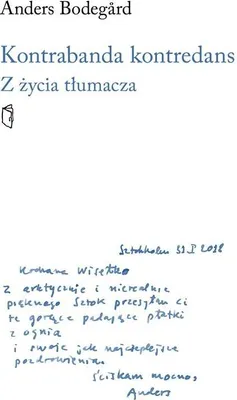 Anders Bodegård
Kontrabanda kontredans
Z życia tłumacza
Sztokholm 2018
Kochana Wisełko
z arktycznie i nierealnie
pięknego Sztok przesyłam ci
te gorące pałające płatki
z ognia
i swoje jak najcieplejsze
pozdrowienia.
Ściskam mocno,
Anders